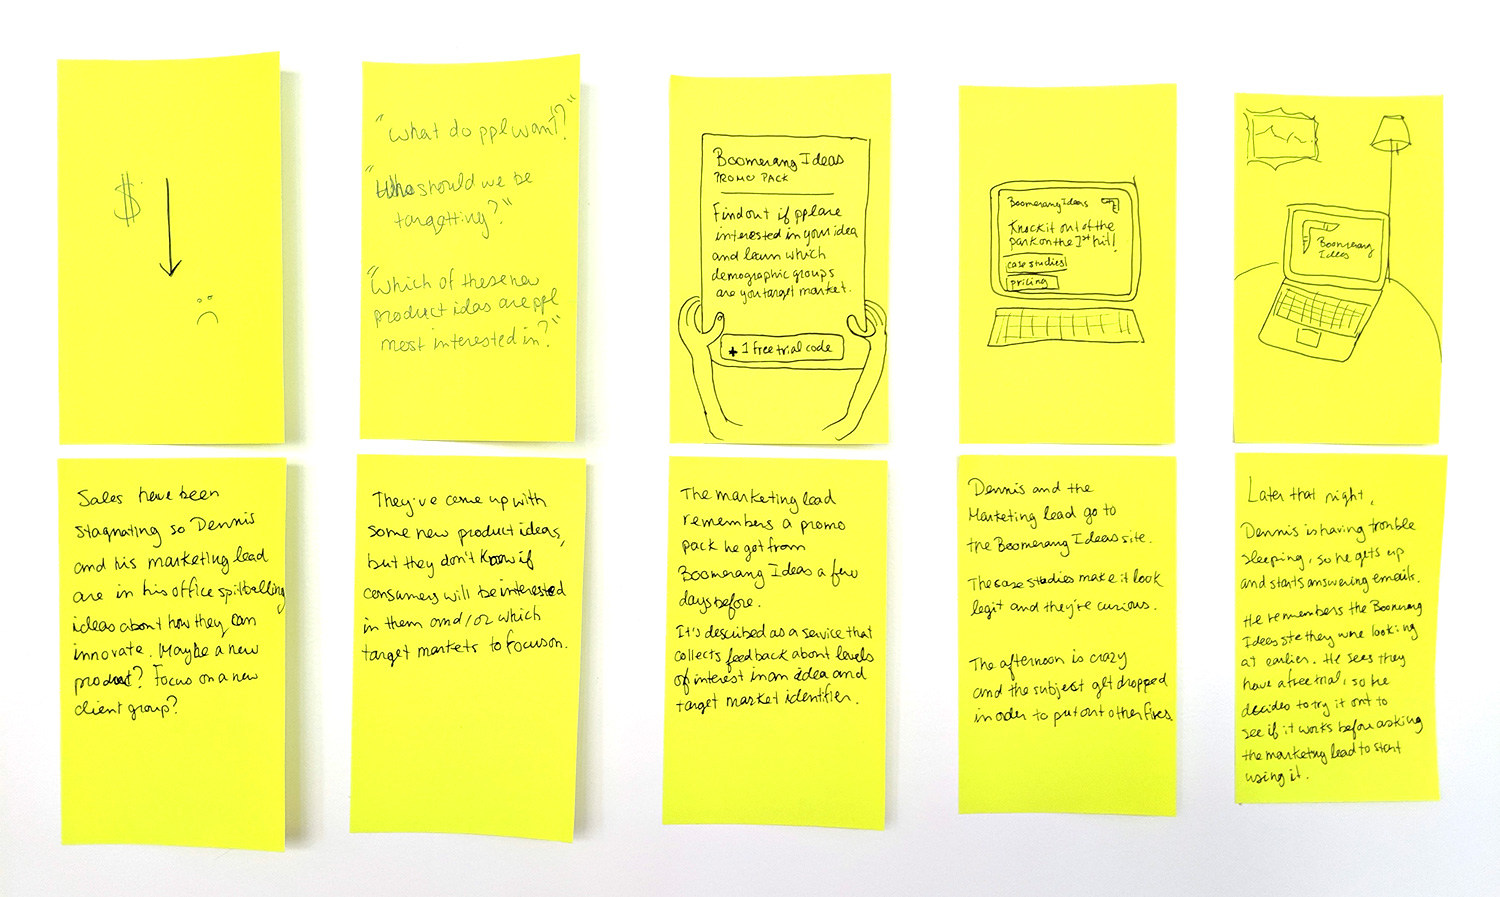 $
"what do ppl want?"
"Who should we be
targetting?"
"Which of these new
product ideas are ppl
most interested in?"
Boomerang Ideas
PROMO PACK
Find out if ppl are
interested in your idea
and learn which
demographic groups
are you target market.
+ 1 free trial code
Boomerang Ideas
Knock it out of the
park on the 1st hit!
case studies
pricing
Boomerang
Ideas
Sales have been
stagnating so Dennis
and his marketing lead
are in his office spitballing
ideas about how they can
innovate. Maybe a new
product? Focus on a new
client group?
They've come up with
some new product ideas,
but they don't know if
consumers will be interested
in them and/or which
target markets to focus on.
The marketing lead
remembers a promo
pack he got from
Boomerang Ideas a few
days before.
It's described as a service that
collects feedback about levels
of interest in an idea and
target market identifier.
Dennis and the
Marketing lead go to
the Boomerang Ideas site.
The case studies make it look
legit and they're curious.
The afternoon is crazy
and the subject get dropped
in order to put out other fires
Later that night,
Dennis is having trouble
sleeping, so he gets up
and starts answering emails.
He remembers the Boomerang
Ideas site they were looking
at earlier. He sees they
have a free trial, so he
decides to try it out to
see if it works before asking
the marketing lead to start
using it.